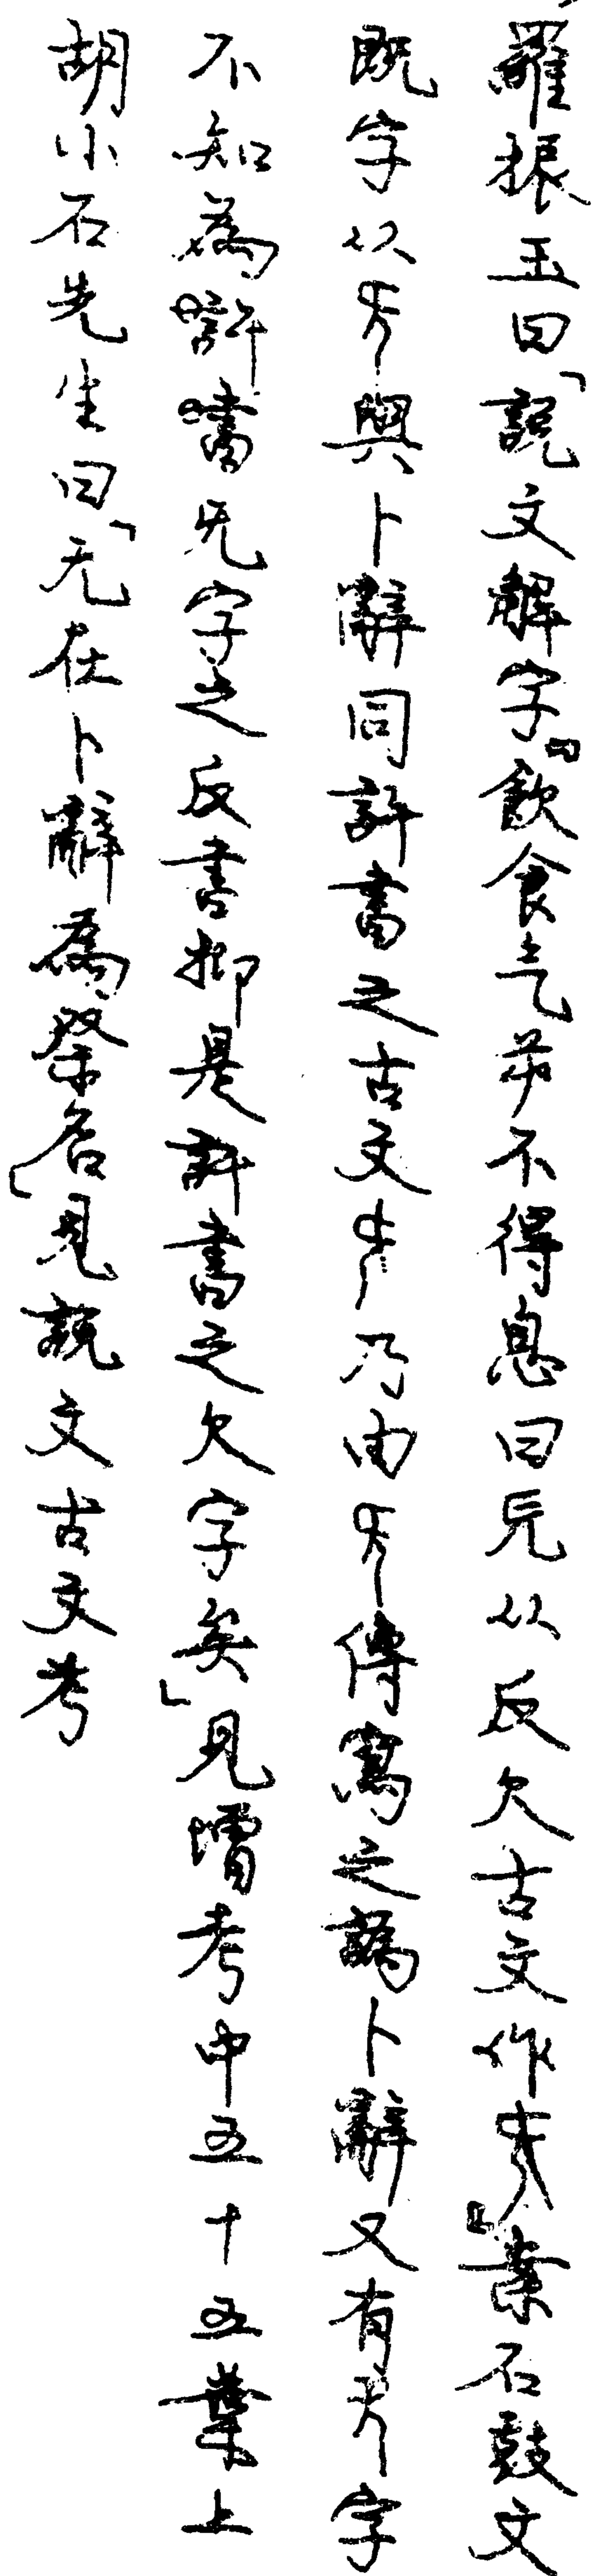 羅振玉曰「說文解字『飲食气屰不得息曰旡从反欠古文作』案石鼓文
既字从與卜辭同許書之古文乃由傳寫之譌卜辭又有字
不知為許書旡字之反書抑是許書之欠字矣」見增考中五十五葉上
胡小石先生曰「旡在卜辭為祭名」見說文古文考